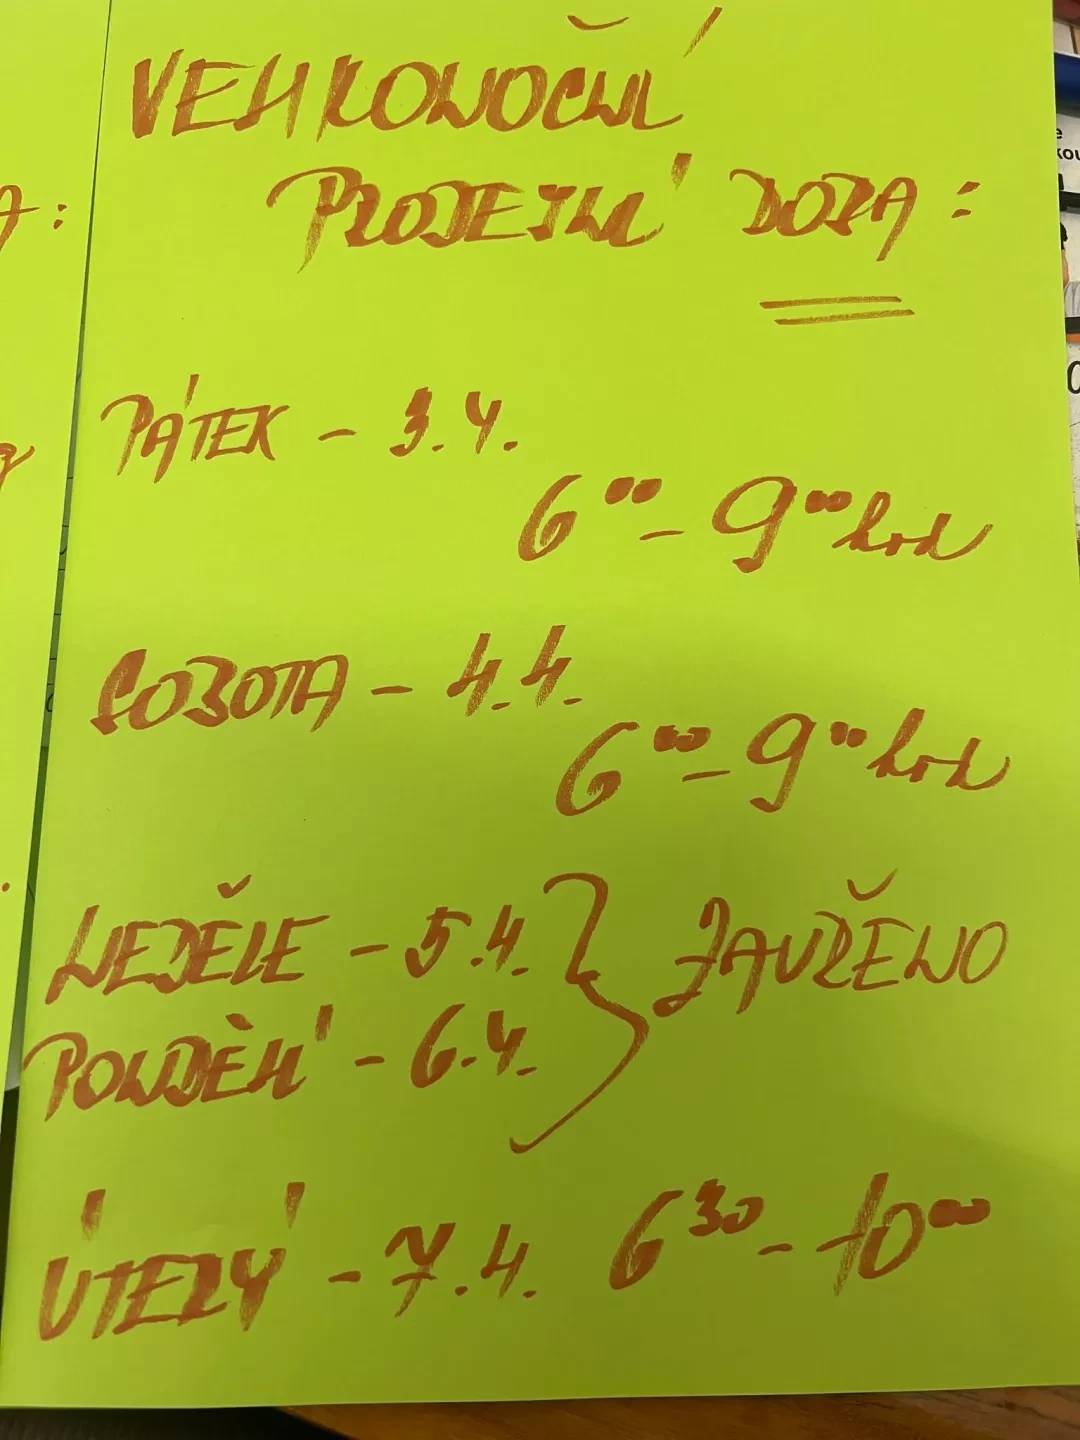 VELIKONOČNÍ
PRODEJNÍ DOBA:
PÁTEK - 3.4.
6⁰⁰ - 9⁰⁰ hod
SOBOTA - 4.4.
6⁰⁰ - 9⁰⁰ hod
NEDĚLE - 5.4. } ZAVŘENO
PONDĚLÍ - 6.4.
ÚTERÝ - 7.4. 6³⁰ - 10⁰⁰